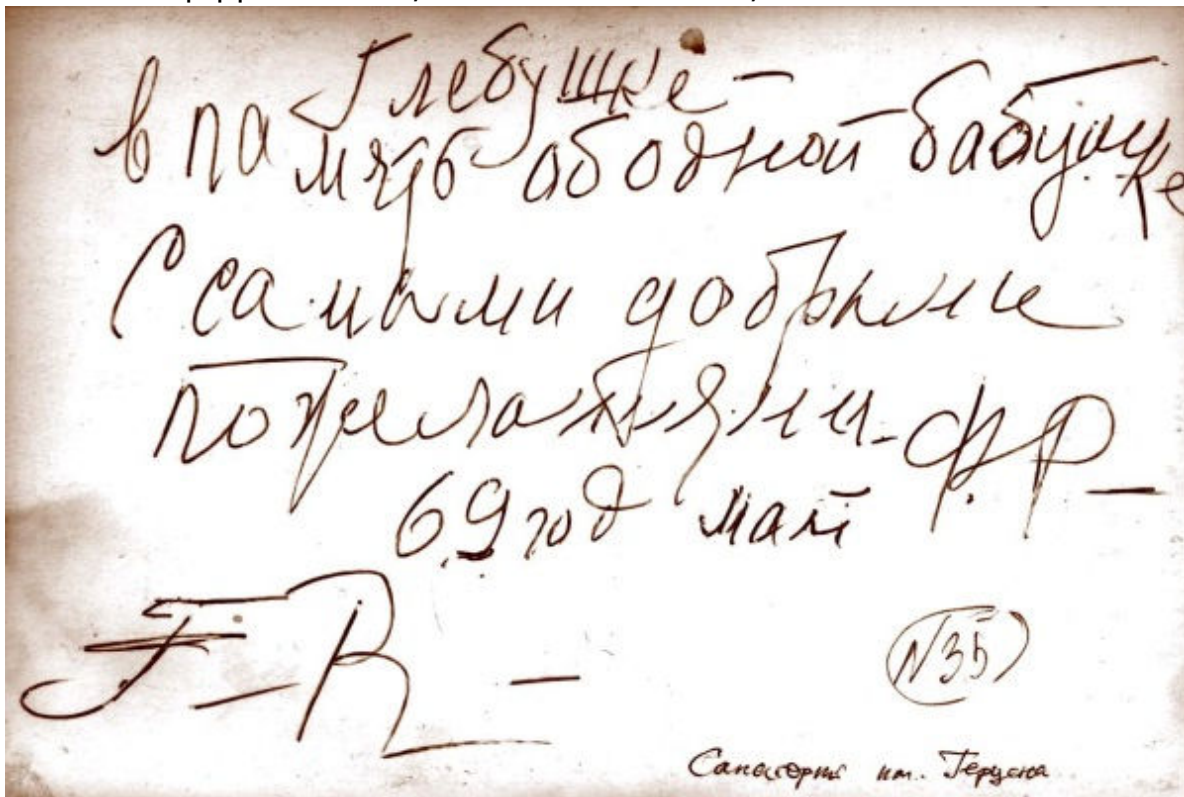 Глебушке -
в память об одной бабушке
С самыми добрыми
пожеланиями. Ф.Р -
69 год май
F - R -
N 35
Санаторий им. Герцена